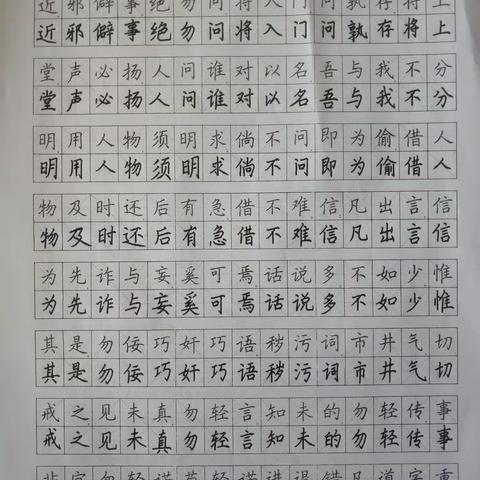 近邪僻事绝勿问将入门问孰存将上
近邪僻事绝勿问将入门问孰存将上
堂声必扬人问谁对以名吾与我不分
堂声必扬人问谁对以名吾与我不分
明用人物须明求倘不问即为偷借人
明用人物须明求倘不问即为偷借人
物及时还后有急借不难信凡出言信
物及时还后有急借不难信凡出言信
为先诈与妄奚可焉话说多不如少惟
为先诈与妄奚可焉话说多不如少惟
其是勿佞巧奸巧语秽污词市井气切
其是勿佞巧奸巧语秽污词市井气切
戒之见未真勿轻言知未的勿轻传事
戒之见未真勿轻言知未的勿轻传事
非宜勿轻诺苟轻诺进退错凡道字重